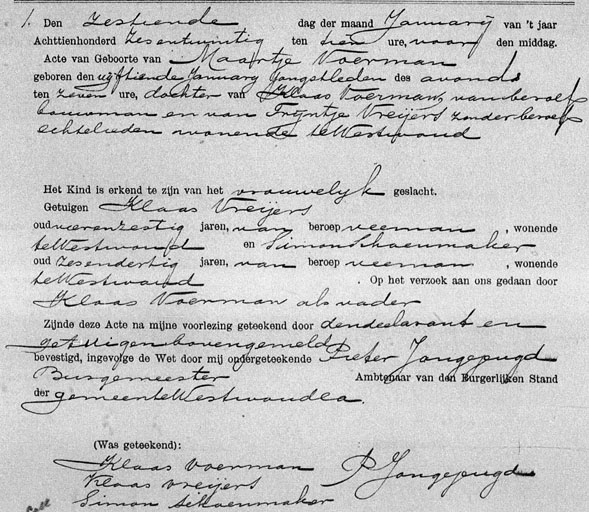 1. Den zestiende dag der maand Januarij van 't jaar
Achttienhonderd zesentwintig ten tien ure, voor den middag.
Acte van Geboorte van Maartje Voerman
geboren den vijftiende January jongstleden des avonds
ten zeven ure, dochter van Klaas Voerman, van beroep
bouwman en van Tryntje Vreijers zonder beroep
echtelieden wonende te Westwoud
Het Kind is erkend te zijn van het vrouwelyk geslacht.
Getuigen Klaas Vreijers
oud vierenzestig jaren, van beroep veeman, wonende
te Westwoud en Simon Schoenmaker
oud zesendertig jaren, van beroep veeman, wonende
te Westwoud. Op het verzoek aan ons gedaan door
Klaas Voerman als vader
Zijnde deze Acte na mijne voorlezing geteekend door den declarant en
getuigen bovengemeld
bevestigd, ingevolge de Wet door mij ondergeteekende Pieter Jongejeugd
Burgemeester Ambtenaar van den Burgerlijken Stand
der gemeente Westwoud ca.
(Was geteekend):
Klaas Voerman P Jongejeugd
Klaas Vreijers
Simon Schoenmaker